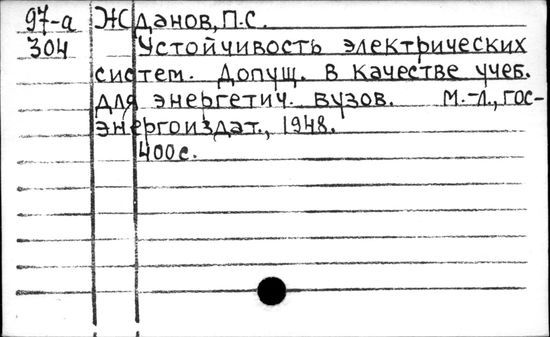 97-а Жданов, П.С.
304 Устойчивость электрических
систем. Допущ. в качестве учеб.
для энергетич. вузов. М.-Л., гос-
энергоиздат., 1948.
400с.